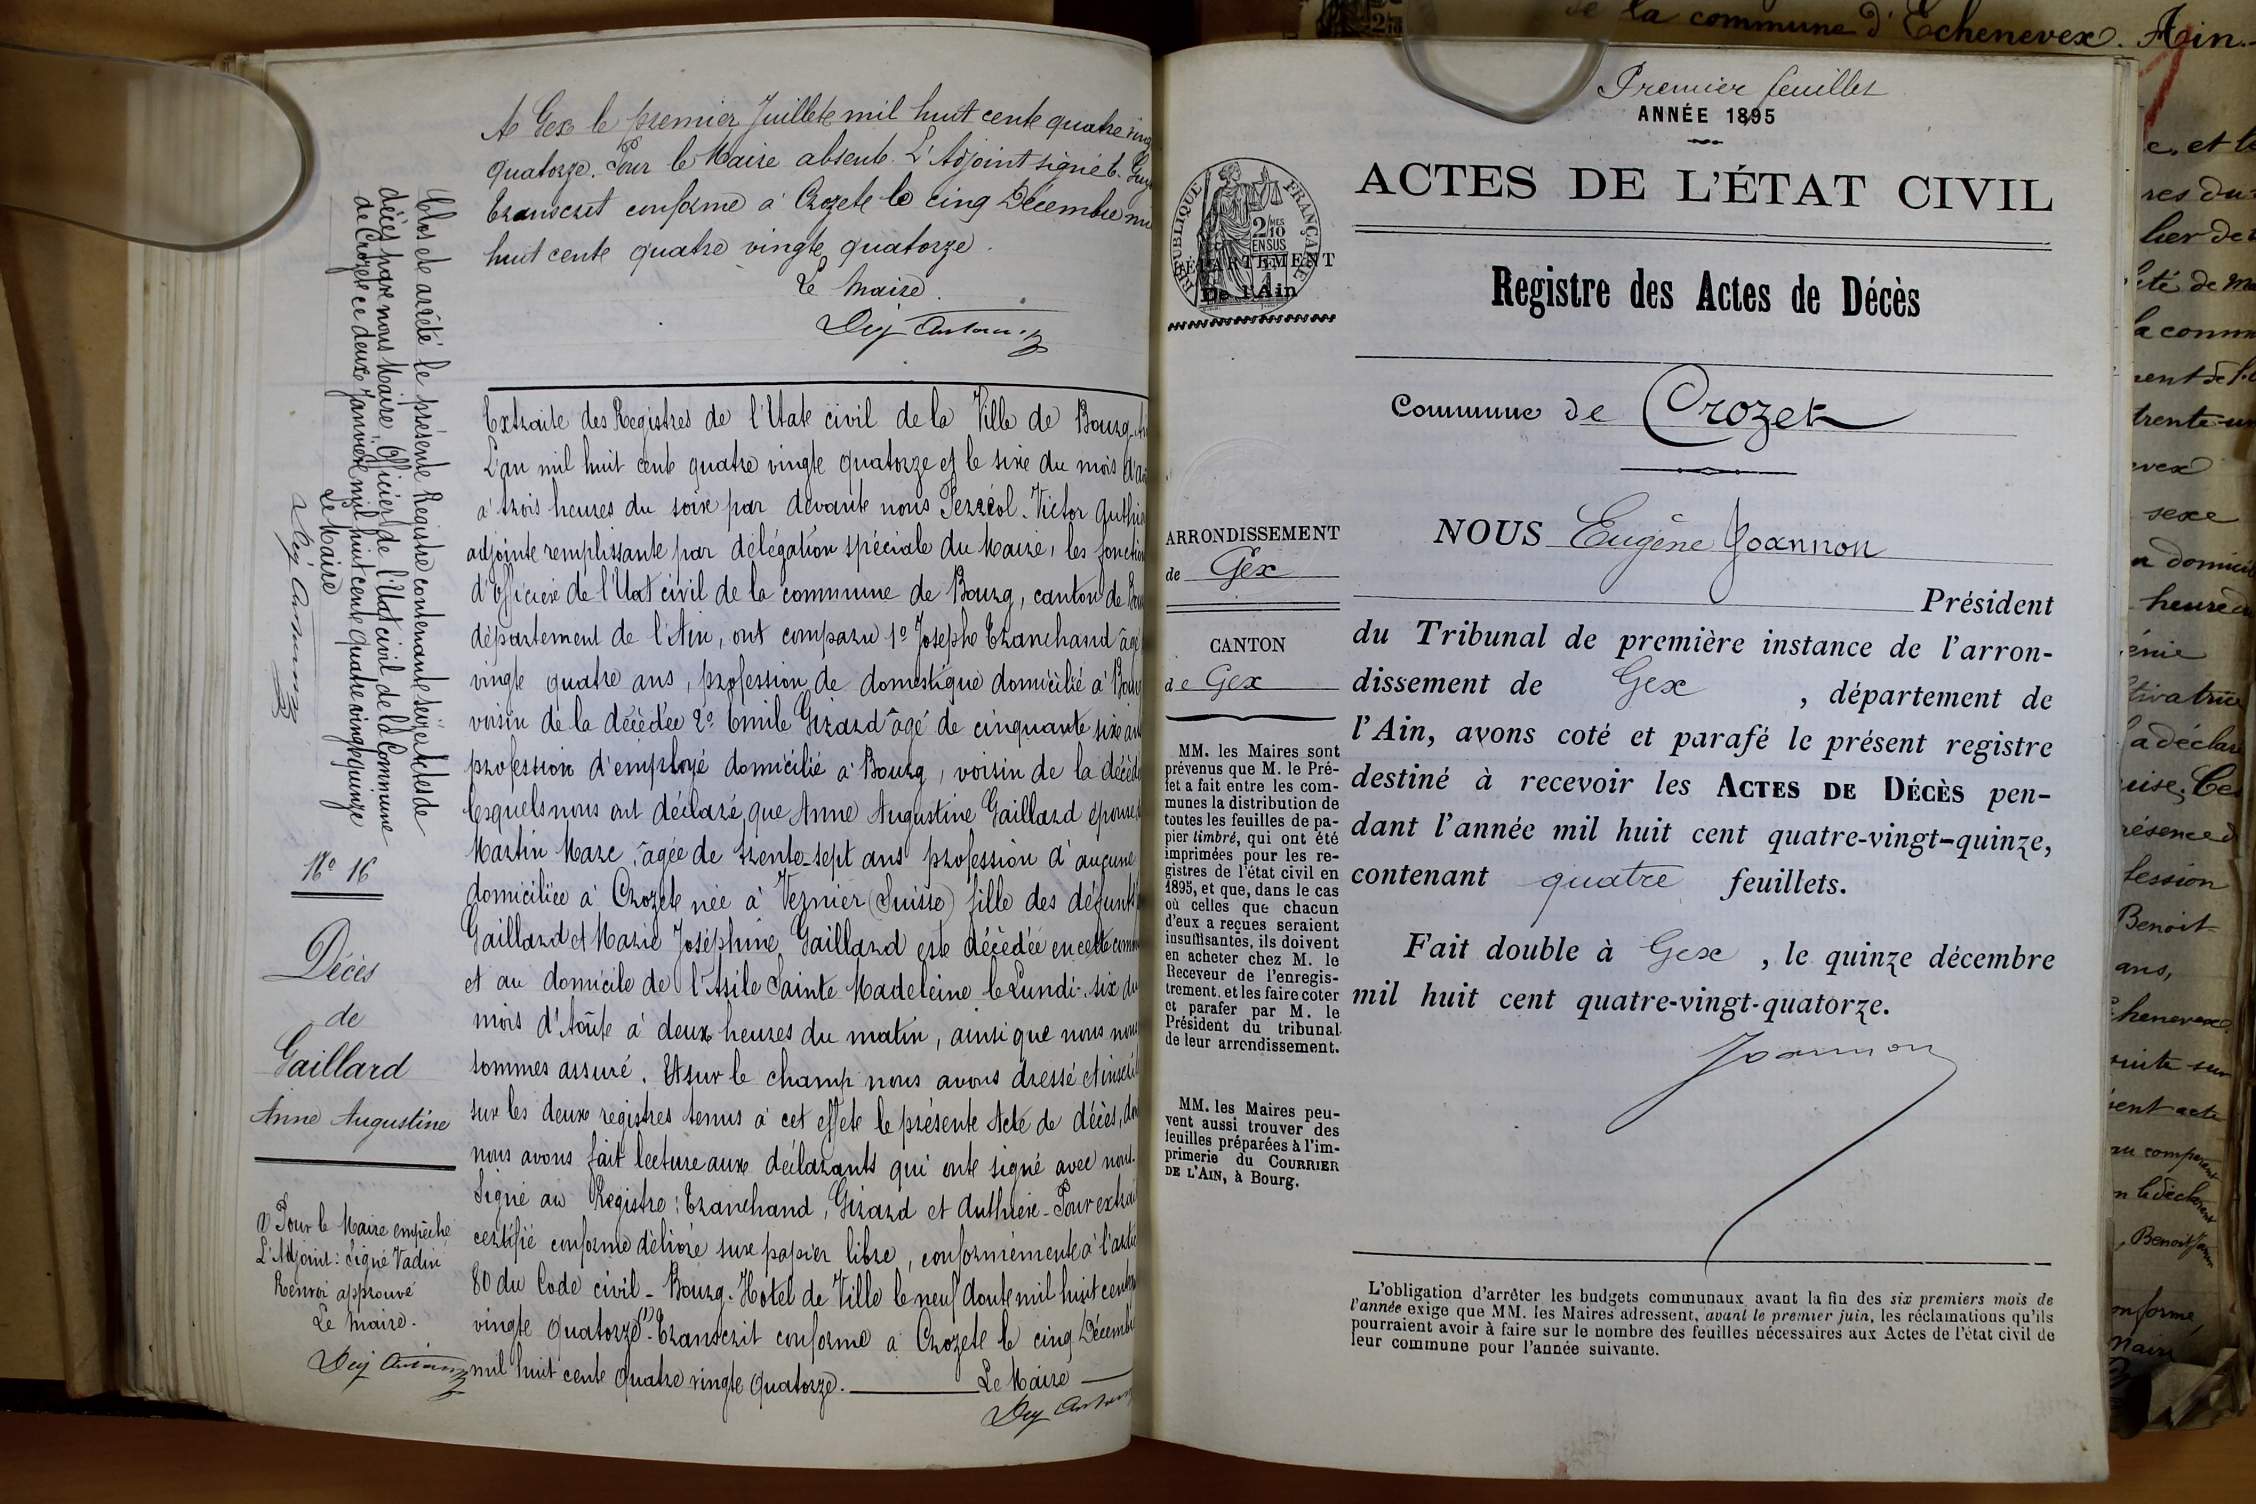 A Gex le premier Juillete mil huit cente quatre ving
quatorze. Pour le Maire absente. L'Adjoint signé
Transcrit conforme à Crozete le cinq Décembre mi
huit cente quatre vingte quatorze.
Le Maire.
Clos ete arrêté le présente Registre contenante seize Actes de
décès pare nous Maire, Officier de l'Etat civil de la Commune
de Crozete ce deuxe Janviere mil huit cente quatre vingte quinze
Le Maire
Extraite des Registres de l'Etate civil de la Ville de Bourg
L'an mil huit cente quatre vingte quatorze et le sixe du mois d'a
à trois heures du soire par devante nous Victor Authie
adjointe remplissante par délégation spéciale du Maire, les fonction
d'officiere de l'Etat civil de la commune de Bourg, canton de Bou
département de l'Ain, ont comparu 1º Josephe Tranchand âgé
vingte quatre ans, profession de domestique domicilié à Bourg
voisin de la décédée 2º Emile Girard âgé de cinquante sixe ans
profession d'employé domicilié à Bourg, voisin de la décéd
Lesquels nous ont déclaré que Anne Augustine Gaillard épouse
Martin Marc, âgée de trente-sept ans profession d'aucune
domiciliée à Crozete née à Vernier (Suisse) fille des défunts
Gaillard et Marie Joséphine Gaillard este décédée en cette comm
et au domicile de l'Asile Sainte Madeleine le Lundi six du
mois d'Aoûte à deuxe heures du matin, ainsi que nous nous
sommes assuré. Et sur le champ nous avons dressé et inscrit
sur les deuxe registres tenus à cet effete le présente Acte de décès, do
nous avons fait lecture auxe déclarants qui onte signé avec nous.
Signé au Registre: Tranchand, Girard et Authiere - Pour extrai
certifié conforme délivré sure papier libre, conformémente à l'arti
80 du Code civil - Bourg. Hôtel de Ville le neuf Aoute mil huit cente
vingte quatorze (1). Transcrit conforme à Crozete le cinq Décemb
mil huit cente quatre vingte quatorze. Le Maire
Nº 16
Décès
de
Gaillard
Anne Augustine
(1) Pour le Maire empêché
L'Adjoint: Signé Vadin
Renvoi approuvé
Le Maire.
de la commune d'Echenevex. Ain.
Premier feuillet
ANNÉE 1895
ACTES DE L'ÉTAT CIVIL
RÉPUBLIQUE FRANÇAISE
2/10 EN SUS
DÉPARTEMENT
De l'Ain
Registre des Actes de Décès
Commune de Crozet
ARRONDISSEMENT
de Gex
CANTON
de Gex
MM. les Maires sont
prévenus que M. le Pré-
fet a fait entre les com-
munes la distribution de
toutes les feuilles de pa-
pier timbré, qui ont été
imprimées pour les re-
gistres de l'état civil en
1895, et que, dans le cas
où celles que chacun
d'eux a reçues seraient
insuffisantes, ils doivent
en acheter chez M. le
Receveur de l'enregis-
trement, et les faire coter
et parafer par M. le
Président du tribunal
de leur arrondissement.
MM. les Maires peu-
vent aussi trouver des
feuilles préparées à l'im-
primerie du COURRIER
DE L'AIN, à Bourg.
NOUS Eugène Joannon
Président
du Tribunal de première instance de l'arron-
dissement de Gex , département de
l'Ain, avons coté et parafé le présent registre
destiné à recevoir les ACTES DE DÉCÈS pen-
dant l'année mil huit cent quatre-vingt-quinze,
contenant quatre feuillets.
Fait double à Gex , le quinze décembre
mil huit cent quatre-vingt-quatorze.
Joannon
L'obligation d'arrêter les budgets communaux avant la fin des six premiers mois de
l'année exige que MM. les Maires adressent, avant le premier juin, les réclamations qu'ils
pourraient avoir à faire sur le nombre des feuilles nécessaires aux Actes de l'état civil de
leur commune pour l'année suivante.